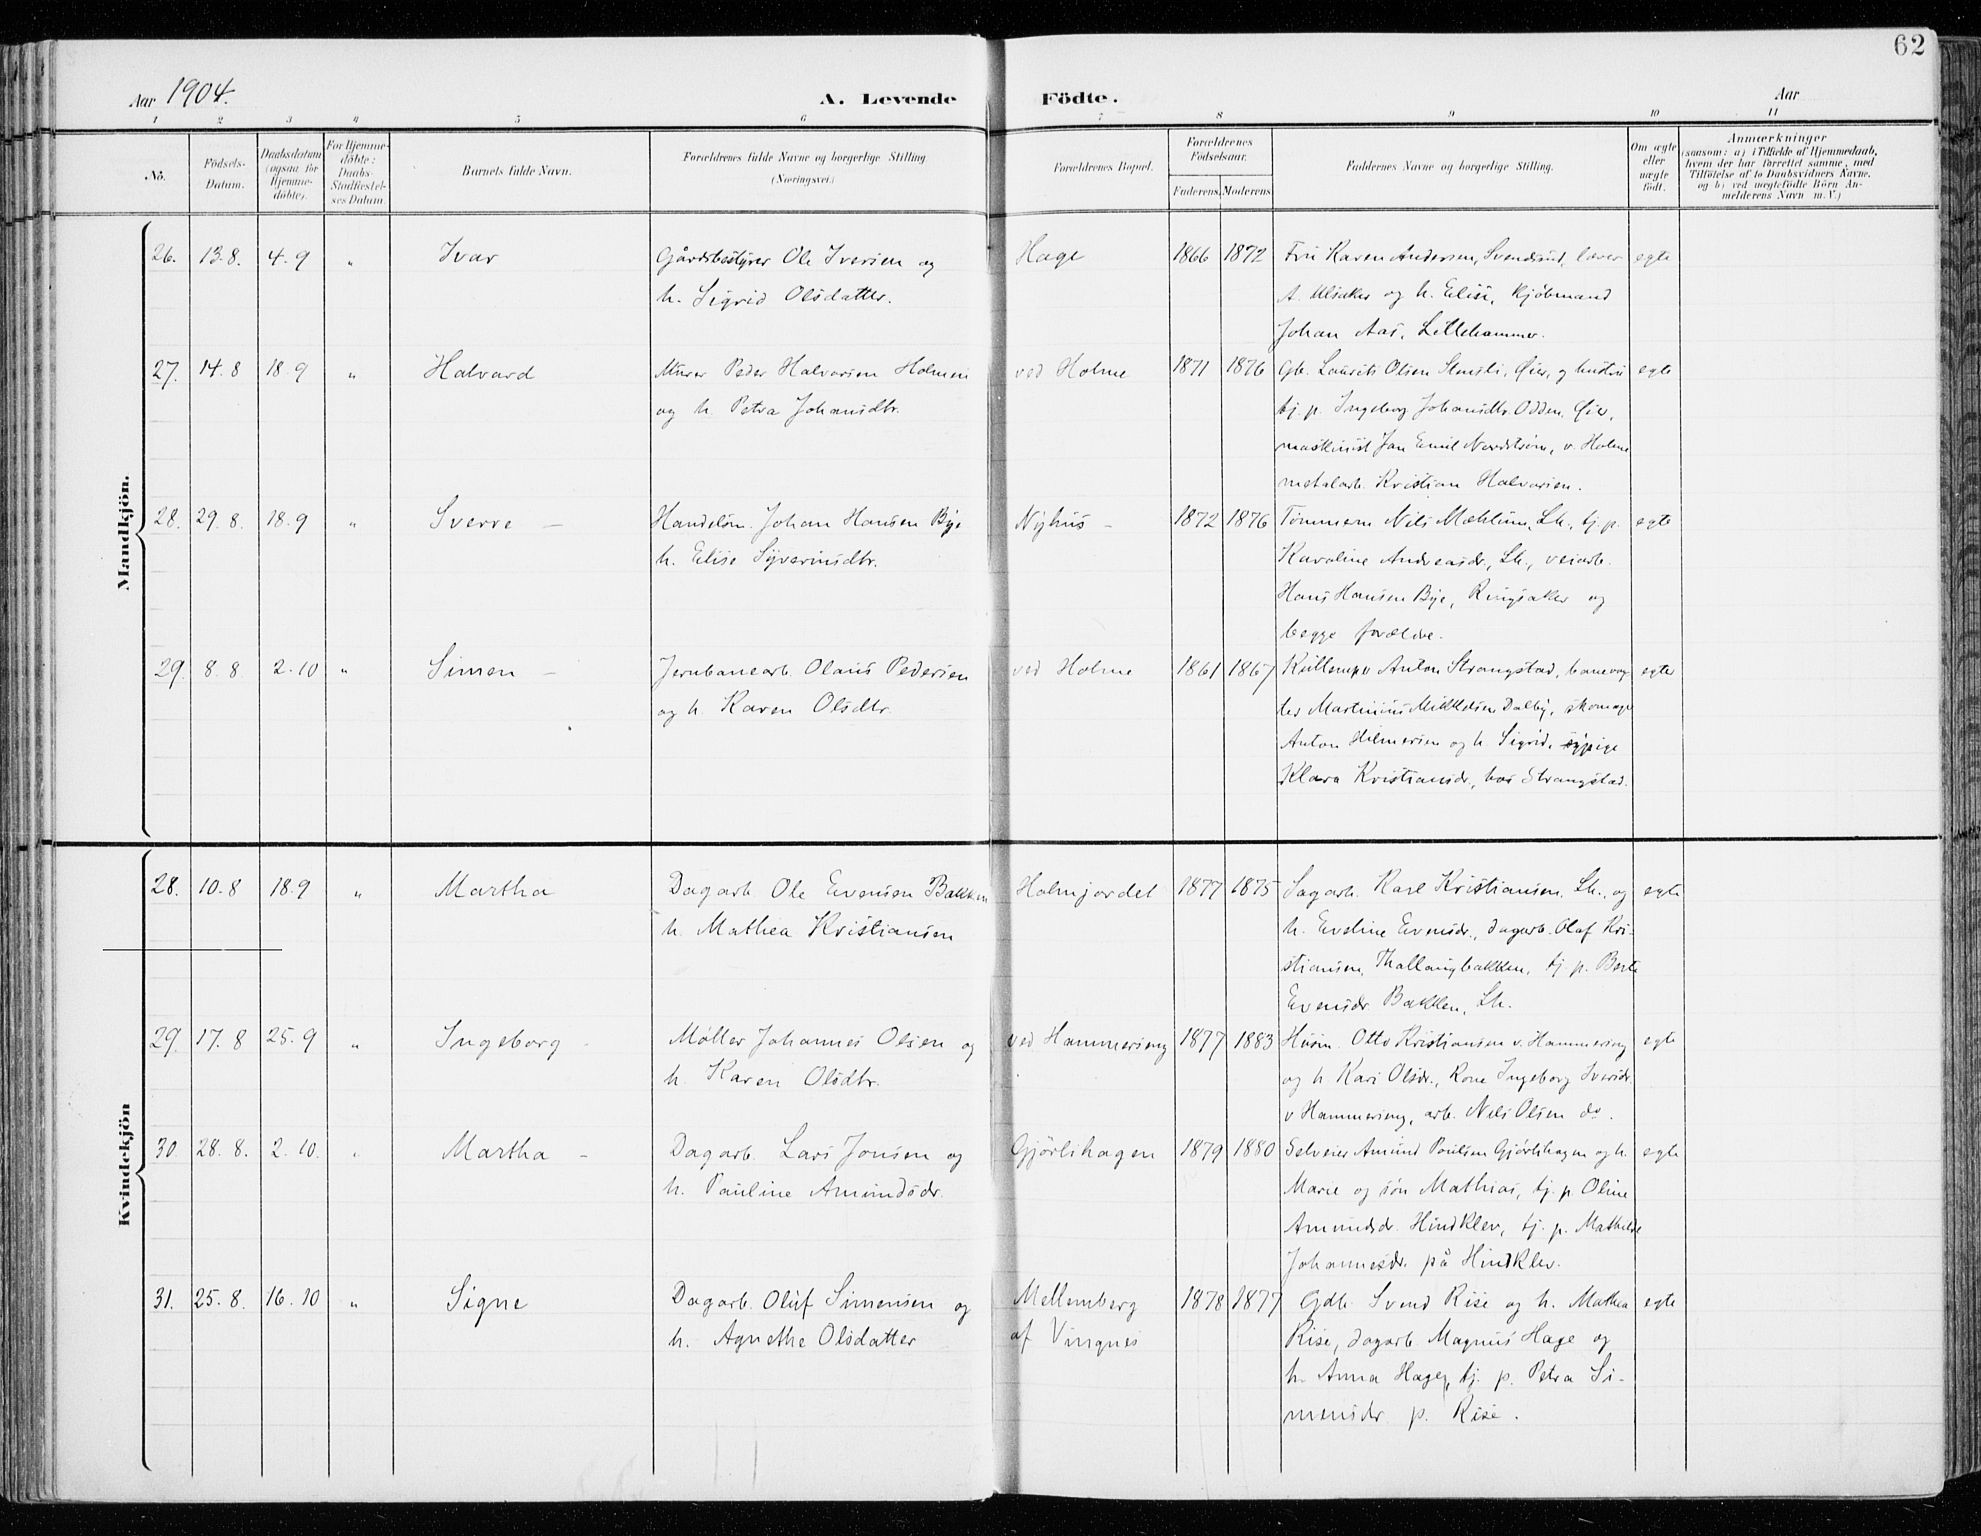 62
Aar 1904.
A. Levende Födte.
Aar
1 2 3 4 5 6 7 8 9 10 11
No.
Födsels-
Datum.
Daabsdatum
(ogsaa for
Hjemme-
døbte).
For Hjemme-
døbte:
Daabs-
Stadfæstel-
ses Datum.
Barnets fulde Navn.
Forældrenes fulde Navne og borgerlige Stilling
(Næringsvei.)
Forældrenes Bopæl.
Forældrenes
Födselsaar.
Faderens. Moderens.
Faddernes Navne og borgerlige Stilling.
Om ægte
eller
uægte
födt.
Anmærkninger
(saasom: a) i Tilfælde af Hjemmedaab,
hvem der har forrettet samme, med
Tilföielse af to Daabsvidners Navne.
og b) ved uægtefödte Börn An-
melderens Navn m. V.)
Mandkjön.
26. 13.8. 4.9 " Ivar Gårdsbestyrer Ole Iversen og Hage 1866 1872 Fru Karen Andersen, Svendsrud, lærer egte
h. Sigrid Olsdatter. A. Ulsaker og h. Elise, kjöbmand
Johan Aas, Lillehammer.
27. 14.8 18.9 " Halvard Murer Peder Halvorsen Holmen ved Holme 1871 1876 Gb. Laurits Olsen Stensli, Øier, og hustru egte
og h. Petra Johansdtr. tj. p. Ingeborg Johansdtr. Odden, Øier,
maskinist Jan Emil Nordström, v. Holme
metalarb. Kristian Halvorsen.
28. 29.8. 18.9 " Sverre – Handelsm. Johan Hansen Bye Nyhus – 1872 1876 Tømmerm. Nils Mæhlum, Lh., tj. p. egte
h. Elise Syverinsdtr. Karoline Andreasdr., Lh., veiarb.
Hans Hansen Bye, Ringsaker og
begge forældre.
29. 8.8 2.10 " Simen – Jernbanearb. Olaus Pedersen ved Holme 1861 1867 Anton Strangstad, banevog- egte
og h. Karen Olsdtr. ter Martinius Mikkelsen Dalby, skomager
Anton Helmersen og h. Sigrid, sypige
Klara Kristiansdr., hos Strangstad.
Kvindekjön
28. 10.8 18.9 " Martha Dagarb. Ole Evensen Bakken Holmjordet 1877 1875 Sagarb. Karl Kristiansen, Lh., og egte
h. Mathea Kristiansen h. Eveline Evensdr., dagarb. Olaf Kri-
stiansen, Thallaugbakken, tj. p. Berte
Evensdr. Bakken, Lh.
29. 17.8 25.9 " Ingeborg – Møller Johannes Olsen og ved Hammereng 1877 1883 Husm. Otto Kristiansen v. Hammereng egte
h. Karen Olsdtr. og h. Kari Olsdr., Kone Ingeborg Iversdr.
v Hammereng, arb. Nils Olsen do.
30 28.8. 2.10. " Martha – Dagarb. Lars Jonsen og Gjørlihagen 1879 1880 Selveier Amund Poulsen Gjørlihagen og h. egte
h. Pauline Amundsdr. Marie og søn Mathias, tj. p Oline
Amundsdr. Hindklev, tj. p. Mathilde
Johannesdr. på Hindklev.
31. 25.8. 16.10 " Signe Dagarb. Oluf Simensen og Mellemberg 1878 1877 Gdb. Svend Rise og h. Mathea egte
h. Agnethe Olsdatter af Vingnes Rise, dagarb. Magnus Hage og
h. Anna Hage, tj. p. Petra Si-
mensdr. p. Rise.